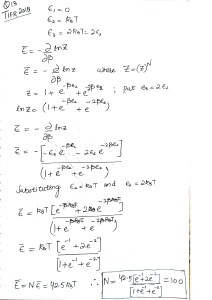 Q13
TIFR 2018
ε₁ = 0
ε₂ = k_BT
ε₃ = 2k_BT = 2ε₂
Ē = -∂/∂β lnZ
Ē = -∂/∂β lnZ where Z = (z)^N
z = 1 + e^{-βε₂} + e^{-2βε₂} ; put ε₃ = 2ε₂
lnz = (1 + e^{-βε₂} + e^{-2βε₂})
Ē = -∂/∂β lnz
Ē = -[-ε₂e^{-βε₂} - 2ε₂e^{-2βε₂}] / (1 + e^{-βε₂} + e^{-2βε₂})
Substituting ε₂ = k_BT and ε₃ = 2k_BT
Ē = k_BT [e^{-βk_BT} + 2e^{-2βk_BT}] / (1 + e^{-βk_BT} + e^{-2βk_BT})
Ē = k_BT [e^{-1} + 2e^{-2}] / [1 + e^{-1} + e^{-2}]
Ē = NĒ = 42.5k_BT ∴ N = 42.5[e^{-1} + 2e^{-2}] / [1 + e^{-1} + e^{-2}] = 100